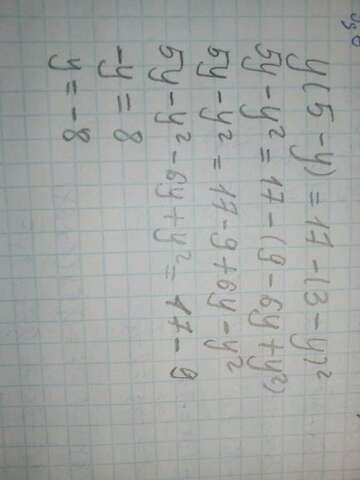 y(5-y)=17-(3-y)²
5y-y²=17-(9-6y+y²)
5y-y²=17-9+6y-y²
5y-y²-6y+y²=17-9
-y=8
y=-8